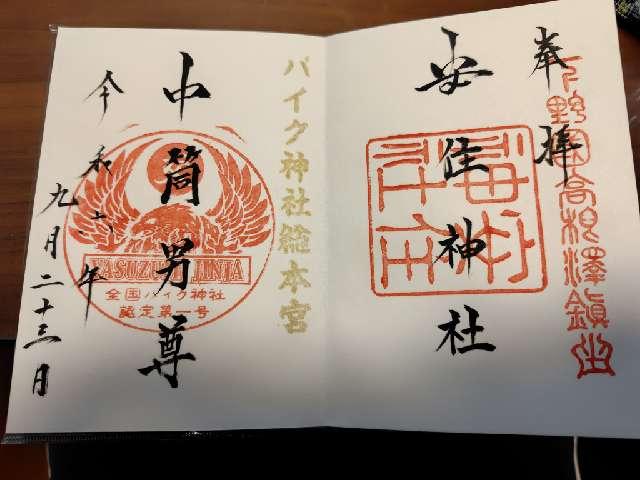 奉拝
下野国高根澤鎮坐
安住神社
バイク神社総本宮
中筒男尊
YASUZUMI JINJA
全国バイク神社
認定第一号
令和六年
九月二十三日